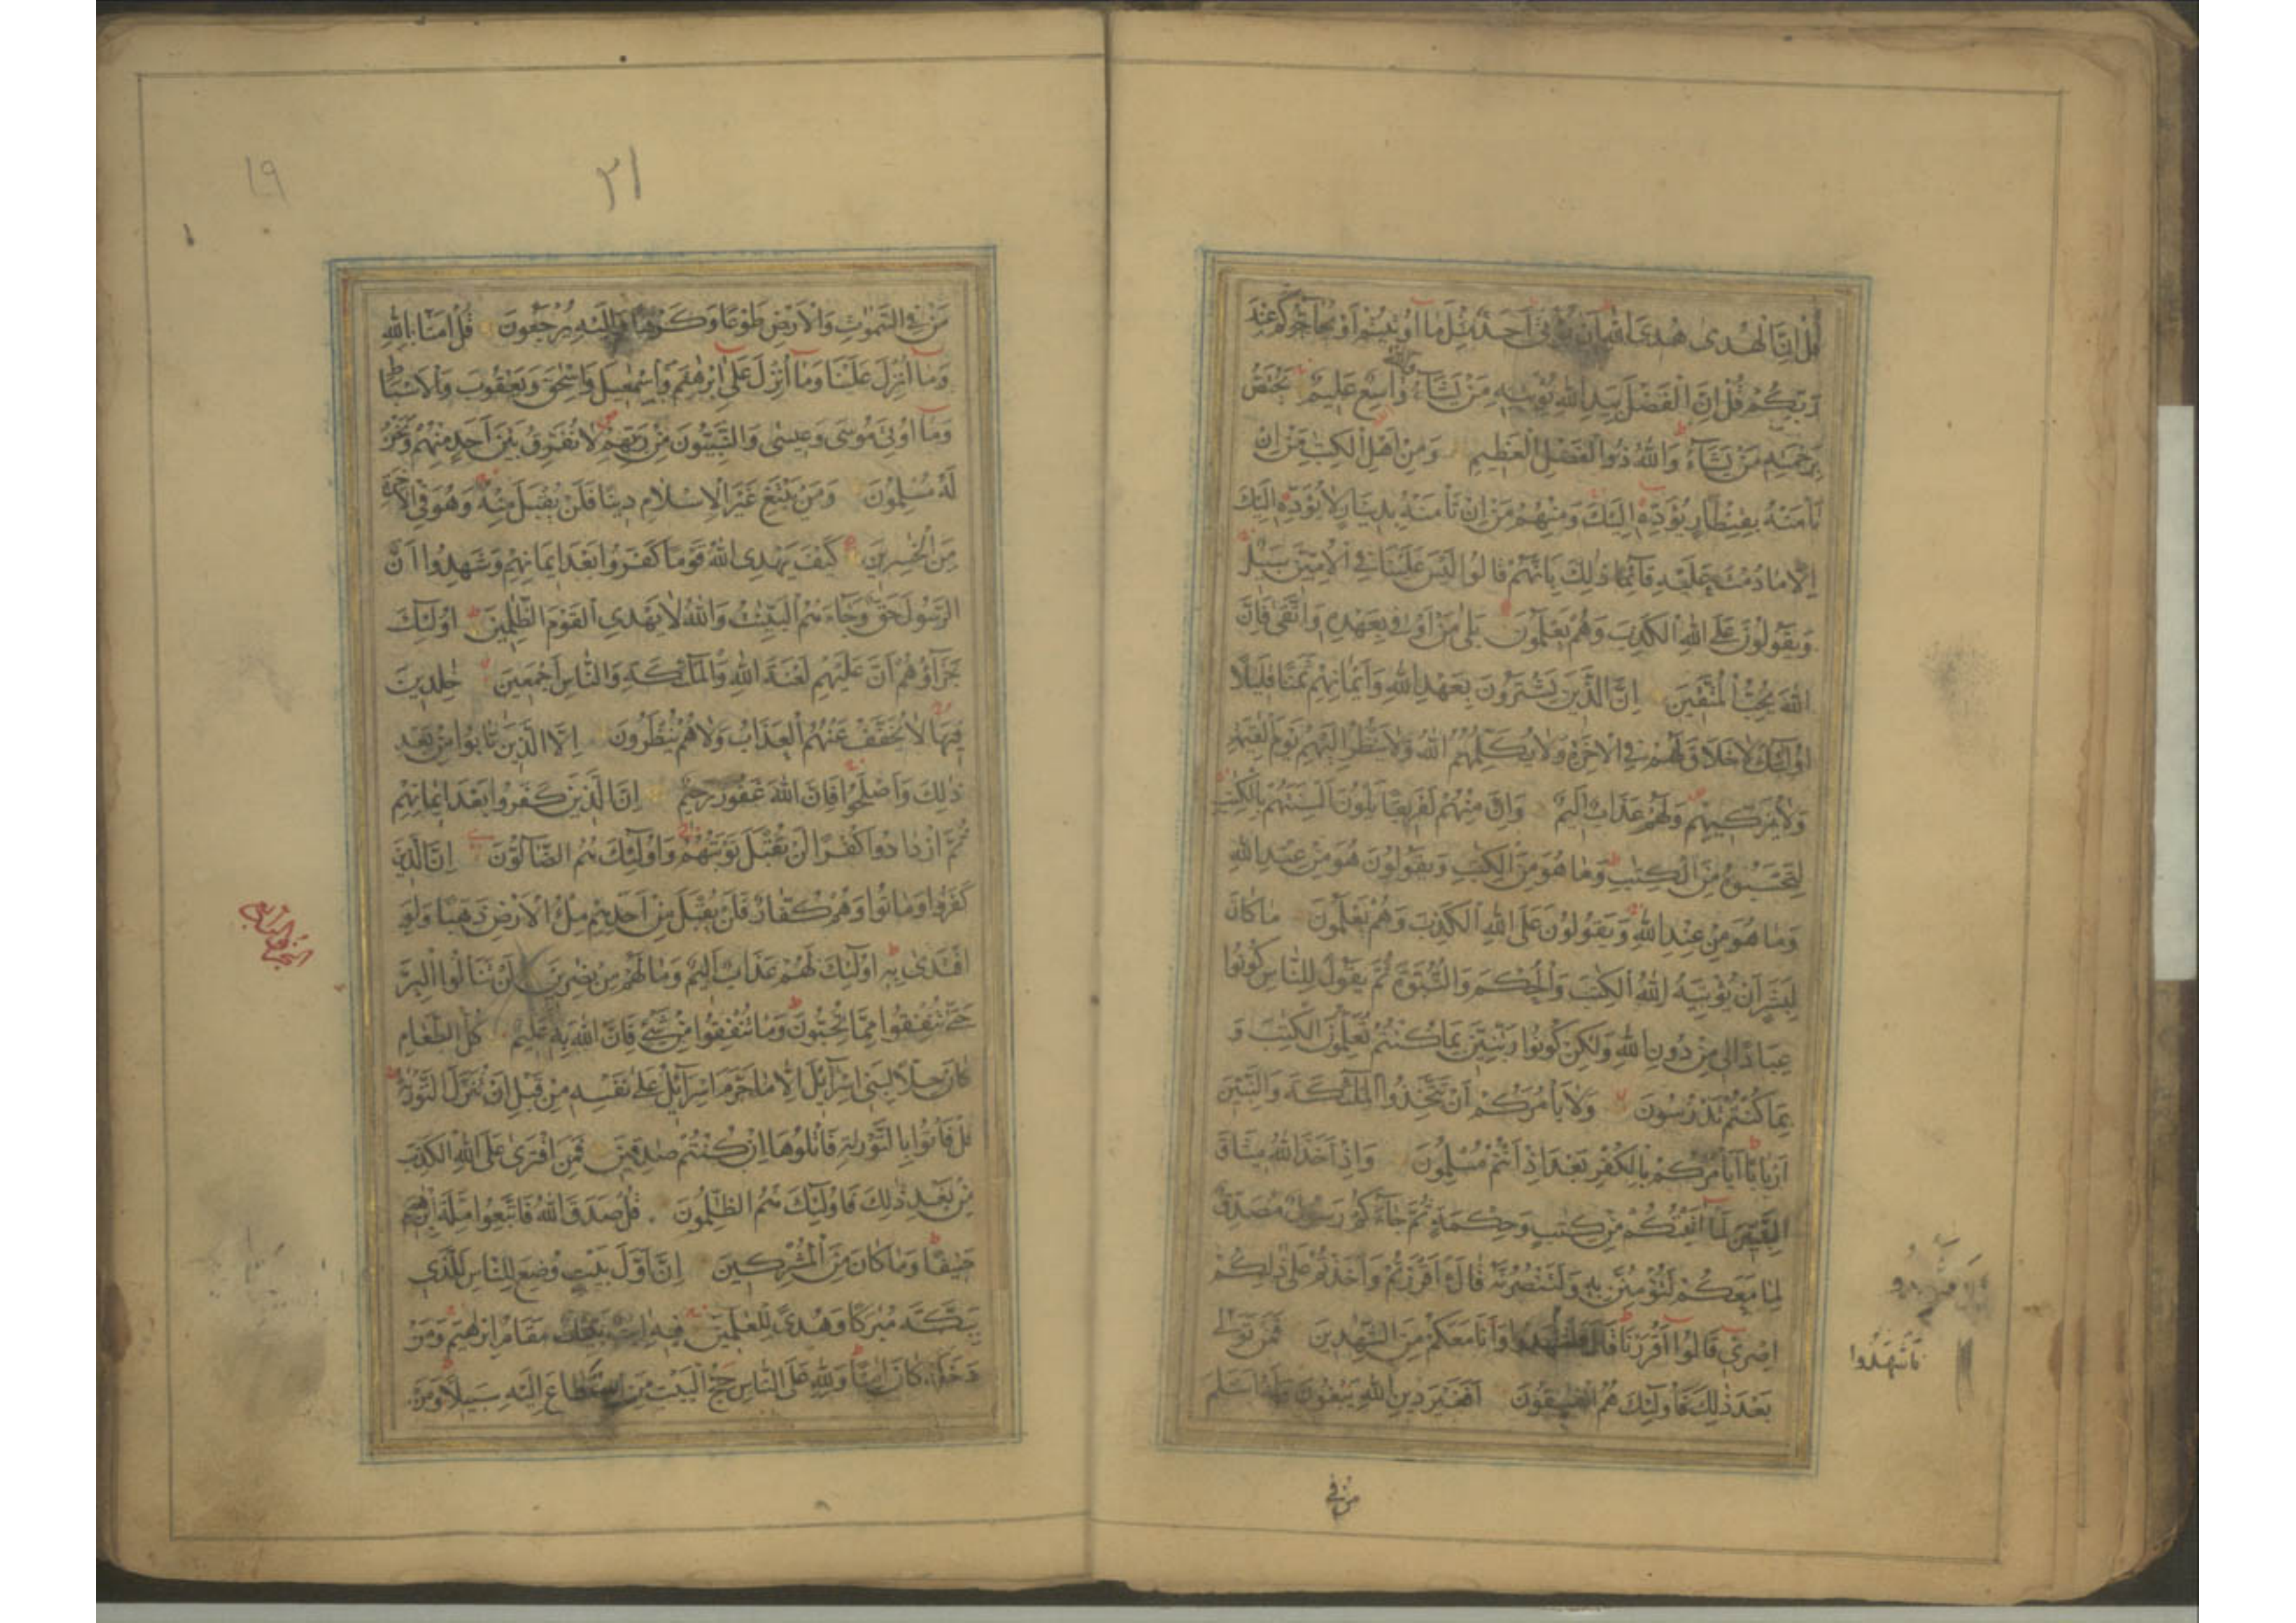 قُلْ اِنَّ الْهُدٰى هُدَى اللّٰهِ اَنْ يُّؤْتٰى اَحَدٌ مِّثْلَ مَآ اُوْتِيْتُمْ اَوْ يُحَآجُّوْكُمْ عِنْدَ
رَبِّكُمْ قُلْ اِنَّ الْفَضْلَ بِيَدِ اللّٰهِ يُؤْتِيْهِ مَنْ يَّشَآءُ وَاللّٰهُ وَاسِعٌ عَلِيْمٌ يَخْتَصُّ
بِرَحْمَتِهٖ مَنْ يَّشَآءُ وَاللّٰهُ ذُو الْفَضْلِ الْعَظِيْمِ وَمِنْ اَهْلِ الْكِتٰبِ مَنْ اِنْ
تَاْمَنْهُ بِقِنْطَارٍ يُّؤَدِّهٖ اِلَيْكَ وَمِنْهُمْ مَنْ اِنْ تَاْمَنْهُ بِدِيْنَارٍ لَا يُؤَدِّهٖ اِلَيْكَ
اِلَّا مَا دُمْتَ عَلَيْهِ قَآئِمًا ذٰلِكَ بِاَنَّهُمْ قَالُوْا لَيْسَ عَلَيْنَا فِى الْاُمِّيِّنَ سَبِيْلٌ
وَيَقُوْلُوْنَ عَلَى اللّٰهِ الْكَذِبَ وَهُمْ يَعْلَمُوْنَ بَلٰى مَنْ اَوْفٰى بِعَهْدِهٖ وَاتَّقٰى فَاِنَّ
اللّٰهَ يُحِبُّ الْمُتَّقِيْنَ اِنَّ الَّذِيْنَ يَشْتَرُوْنَ بِعَهْدِ اللّٰهِ وَاَيْمَانِهِمْ ثَمَنًا قَلِيْلًا
اُولٰٓئِكَ لَا خَلَاقَ لَهُمْ فِى الْاٰخِرَةِ وَلَا يُكَلِّمُهُمُ اللّٰهُ وَلَا يَنْظُرُ اِلَيْهِمْ يَوْمَ الْقِيٰمَةِ
وَلَا يُزَكِّيْهِمْ وَلَهُمْ عَذَابٌ اَلِيْمٌ وَاِنَّ مِنْهُمْ لَفَرِيْقًا يَلْوُنَ اَلْسِنَتَهُمْ بِالْكِتٰبِ
لِتَحْسَبُوْهُ مِنَ الْكِتٰبِ وَمَا هُوَ مِنَ الْكِتٰبِ وَيَقُوْلُوْنَ هُوَ مِنْ عِنْدِ اللّٰهِ
وَمَا هُوَ مِنْ عِنْدِ اللّٰهِ وَيَقُوْلُوْنَ عَلَى اللّٰهِ الْكَذِبَ وَهُمْ يَعْلَمُوْنَ مَا كَانَ
لِبَشَرٍ اَنْ يُّؤْتِيَهُ اللّٰهُ الْكِتٰبَ وَالْحُكْمَ وَالنُّبُوَّةَ ثُمَّ يَقُوْلَ لِلنَّاسِ كُوْنُوْا
عِبَادًا لِّى مِنْ دُوْنِ اللّٰهِ وَلٰكِنْ كُوْنُوْا رَبَّنِيِّنَ بِمَا كُنْتُمْ تُعَلِّمُوْنَ الْكِتٰبَ وَ
بِمَا كُنْتُمْ تَدْرُسُوْنَ وَلَا يَاْمُرَكُمْ اَنْ تَتَّخِذُوا الْمَلٰٓئِكَةَ وَالنَّبِيّٖنَ
اَرْبَابًا اَيَاْمُرُكُمْ بِالْكُفْرِ بَعْدَ اِذْ اَنْتُمْ مُّسْلِمُوْنَ وَاِذْ اَخَذَ اللّٰهُ مِيْثَاقَ
النَّبِيّٖنَ لَمَآ اٰتَيْتُكُمْ مِّنْ كِتٰبٍ وَّحِكْمَةٍ ثُمَّ جَآءَكُمْ رَسُوْلٌ مُّصَدِّقٌ
لِّمَا مَعَكُمْ لَتُؤْمِنُنَّ بِهٖ وَلَتَنْصُرُنَّهٗ قَالَ ءَاَقْرَرْتُمْ وَاَخَذْتُمْ عَلٰى ذٰلِكُمْ
اِصْرِىْ قَالُوْا اَقْرَرْنَا قَالَ فَاشْهَدُوْا وَاَنَا مَعَكُمْ مِّنَ الشّٰهِدِيْنَ فَمَنْ تَوَلّٰى
فَاشْهَدُوا
بَعْدَ ذٰلِكَ فَاُولٰٓئِكَ هُمُ الْفٰسِقُوْنَ اَفَغَيْرَ دِيْنِ اللّٰهِ يَبْغُوْنَ وَلَهٗ اَسْلَمَ
من في
١٩
٢١
مَنْ فِى السَّمٰوٰتِ وَالْاَرْضِ طَوْعًا وَّكَرْهًا وَّاِلَيْهِ يُرْجَعُوْنَ قُلْ اٰمَنَّا بِاللّٰهِ
وَمَآ اُنْزِلَ عَلَيْنَا وَمَآ اُنْزِلَ عَلٰٓى اِبْرٰهِيْمَ وَاِسْمٰعِيْلَ وَاِسْحٰقَ وَيَعْقُوْبَ وَالْاَسْبَاطِ
وَمَآ اُوْتِىَ مُوْسٰى وَعِيْسٰى وَالنَّبِيُّوْنَ مِنْ رَّبِّهِمْ لَا نُفَرِّقُ بَيْنَ اَحَدٍ مِّنْهُمْ وَنَحْنُ
لَهٗ مُسْلِمُوْنَ وَمَنْ يَّبْتَغِ غَيْرَ الْاِسْلَامِ دِيْنًا فَلَنْ يُّقْبَلَ مِنْهُ وَهُوَ فِى الْاٰخِرَةِ
مِنَ الْخٰسِرِيْنَ كَيْفَ يَهْدِى اللّٰهُ قَوْمًا كَفَرُوْا بَعْدَ اِيْمَانِهِمْ وَشَهِدُوْا اَنَّ
الرَّسُوْلَ حَقٌّ وَّجَآءَهُمُ الْبَيِّنٰتُ وَاللّٰهُ لَا يَهْدِى الْقَوْمَ الظّٰلِمِيْنَ اُولٰٓئِكَ
جَزَآؤُهُمْ اَنَّ عَلَيْهِمْ لَعْنَةَ اللّٰهِ وَالْمَلٰٓئِكَةِ وَالنَّاسِ اَجْمَعِيْنَ خٰلِدِيْنَ
فِيْهَا لَا يُخَفَّفُ عَنْهُمُ الْعَذَابُ وَلَا هُمْ يُنْظَرُوْنَ اِلَّا الَّذِيْنَ تَابُوْا مِنْ بَعْدِ
ذٰلِكَ وَاَصْلَحُوْا فَاِنَّ اللّٰهَ غَفُوْرٌ رَّحِيْمٌ اِنَّ الَّذِيْنَ كَفَرُوْا بَعْدَ اِيْمَانِهِمْ
ثُمَّ ازْدَادُوْا كُفْرًا لَنْ تُقْبَلَ تَوْبَتُهُمْ وَاُولٰٓئِكَ هُمُ الضَّآلُّوْنَ اِنَّ الَّذِيْنَ
كَفَرُوْا وَمَاتُوْا وَهُمْ كُفَّارٌ فَلَنْ يُّقْبَلَ مِنْ اَحَدِهِمْ مِّلْءُ الْاَرْضِ ذَهَبًا وَّلَوِ
افْتَدٰى بِهٖ اُولٰٓئِكَ لَهُمْ عَذَابٌ اَلِيْمٌ وَّمَا لَهُمْ مِنْ نّٰصِرِيْنَ لَنْ تَنَالُوا الْبِرَّ
حَتّٰى تُنْفِقُوْا مِمَّا تُحِبُّوْنَ وَمَا تُنْفِقُوْا مِنْ شَىْءٍ فَاِنَّ اللّٰهَ بِهٖ عَلِيْمٌ كُلُّ الطَّعَامِ
كَانَ حِلًّا لِّبَنِىْٓ اِسْرَآئِيْلَ اِلَّا مَا حَرَّمَ اِسْرَآئِيْلُ عَلٰى نَفْسِهٖ مِنْ قَبْلِ اَنْ تُنَزَّلَ التَّوْرٰىةُ
قُلْ فَاْتُوْا بِالتَّوْرٰىةِ فَاتْلُوْهَا اِنْ كُنْتُمْ صٰدِقِيْنَ فَمَنِ افْتَرٰى عَلَى اللّٰهِ الْكَذِبَ
مِنْ بَعْدِ ذٰلِكَ فَاُولٰٓئِكَ هُمُ الظّٰلِمُوْنَ قُلْ صَدَقَ اللّٰهُ فَاتَّبِعُوْا مِلَّةَ اِبْرٰهِيْمَ
حَنِيْفًا وَمَا كَانَ مِنَ الْمُشْرِكِيْنَ اِنَّ اَوَّلَ بَيْتٍ وُّضِعَ لِلنَّاسِ لَلَّذِىْ
بِبَكَّةَ مُبٰرَكًا وَّهُدًى لِّلْعٰلَمِيْنَ فِيْهِ اٰيٰتٌ بَيِّنٰتٌ مَّقَامُ اِبْرٰهِيْمَ وَمَنْ
دَخَلَهٗ كَانَ اٰمِنًا وَلِلّٰهِ عَلَى النَّاسِ حِجُّ الْبَيْتِ مَنِ اسْتَطَاعَ اِلَيْهِ سَبِيْلًا وَمَنْ